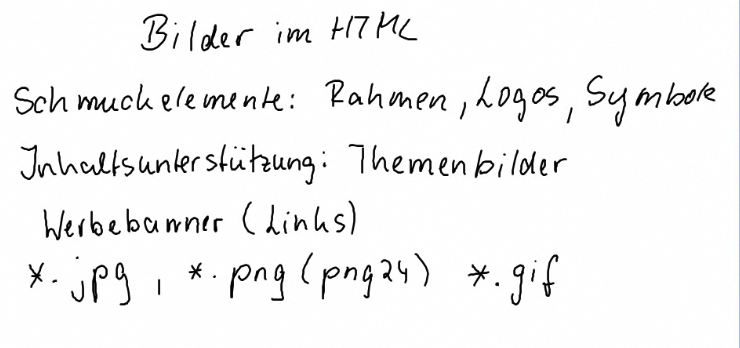 Bilder im HTML
Schmuckelemente: Rahmen, Logos, Symbole
Inhaltsunterstützung: Themenbilder
Werbebanner (Links)
*.jpg, *.png (png24) *.gif